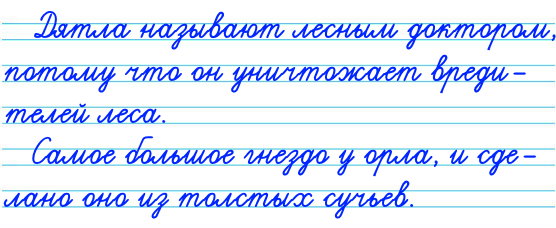 Дятла называют лесным доктором,
потому что он уничтожает вреди-
телей леса.
Самое большое гнездо у орла, и сде-
лано оно из толстых сучьев.